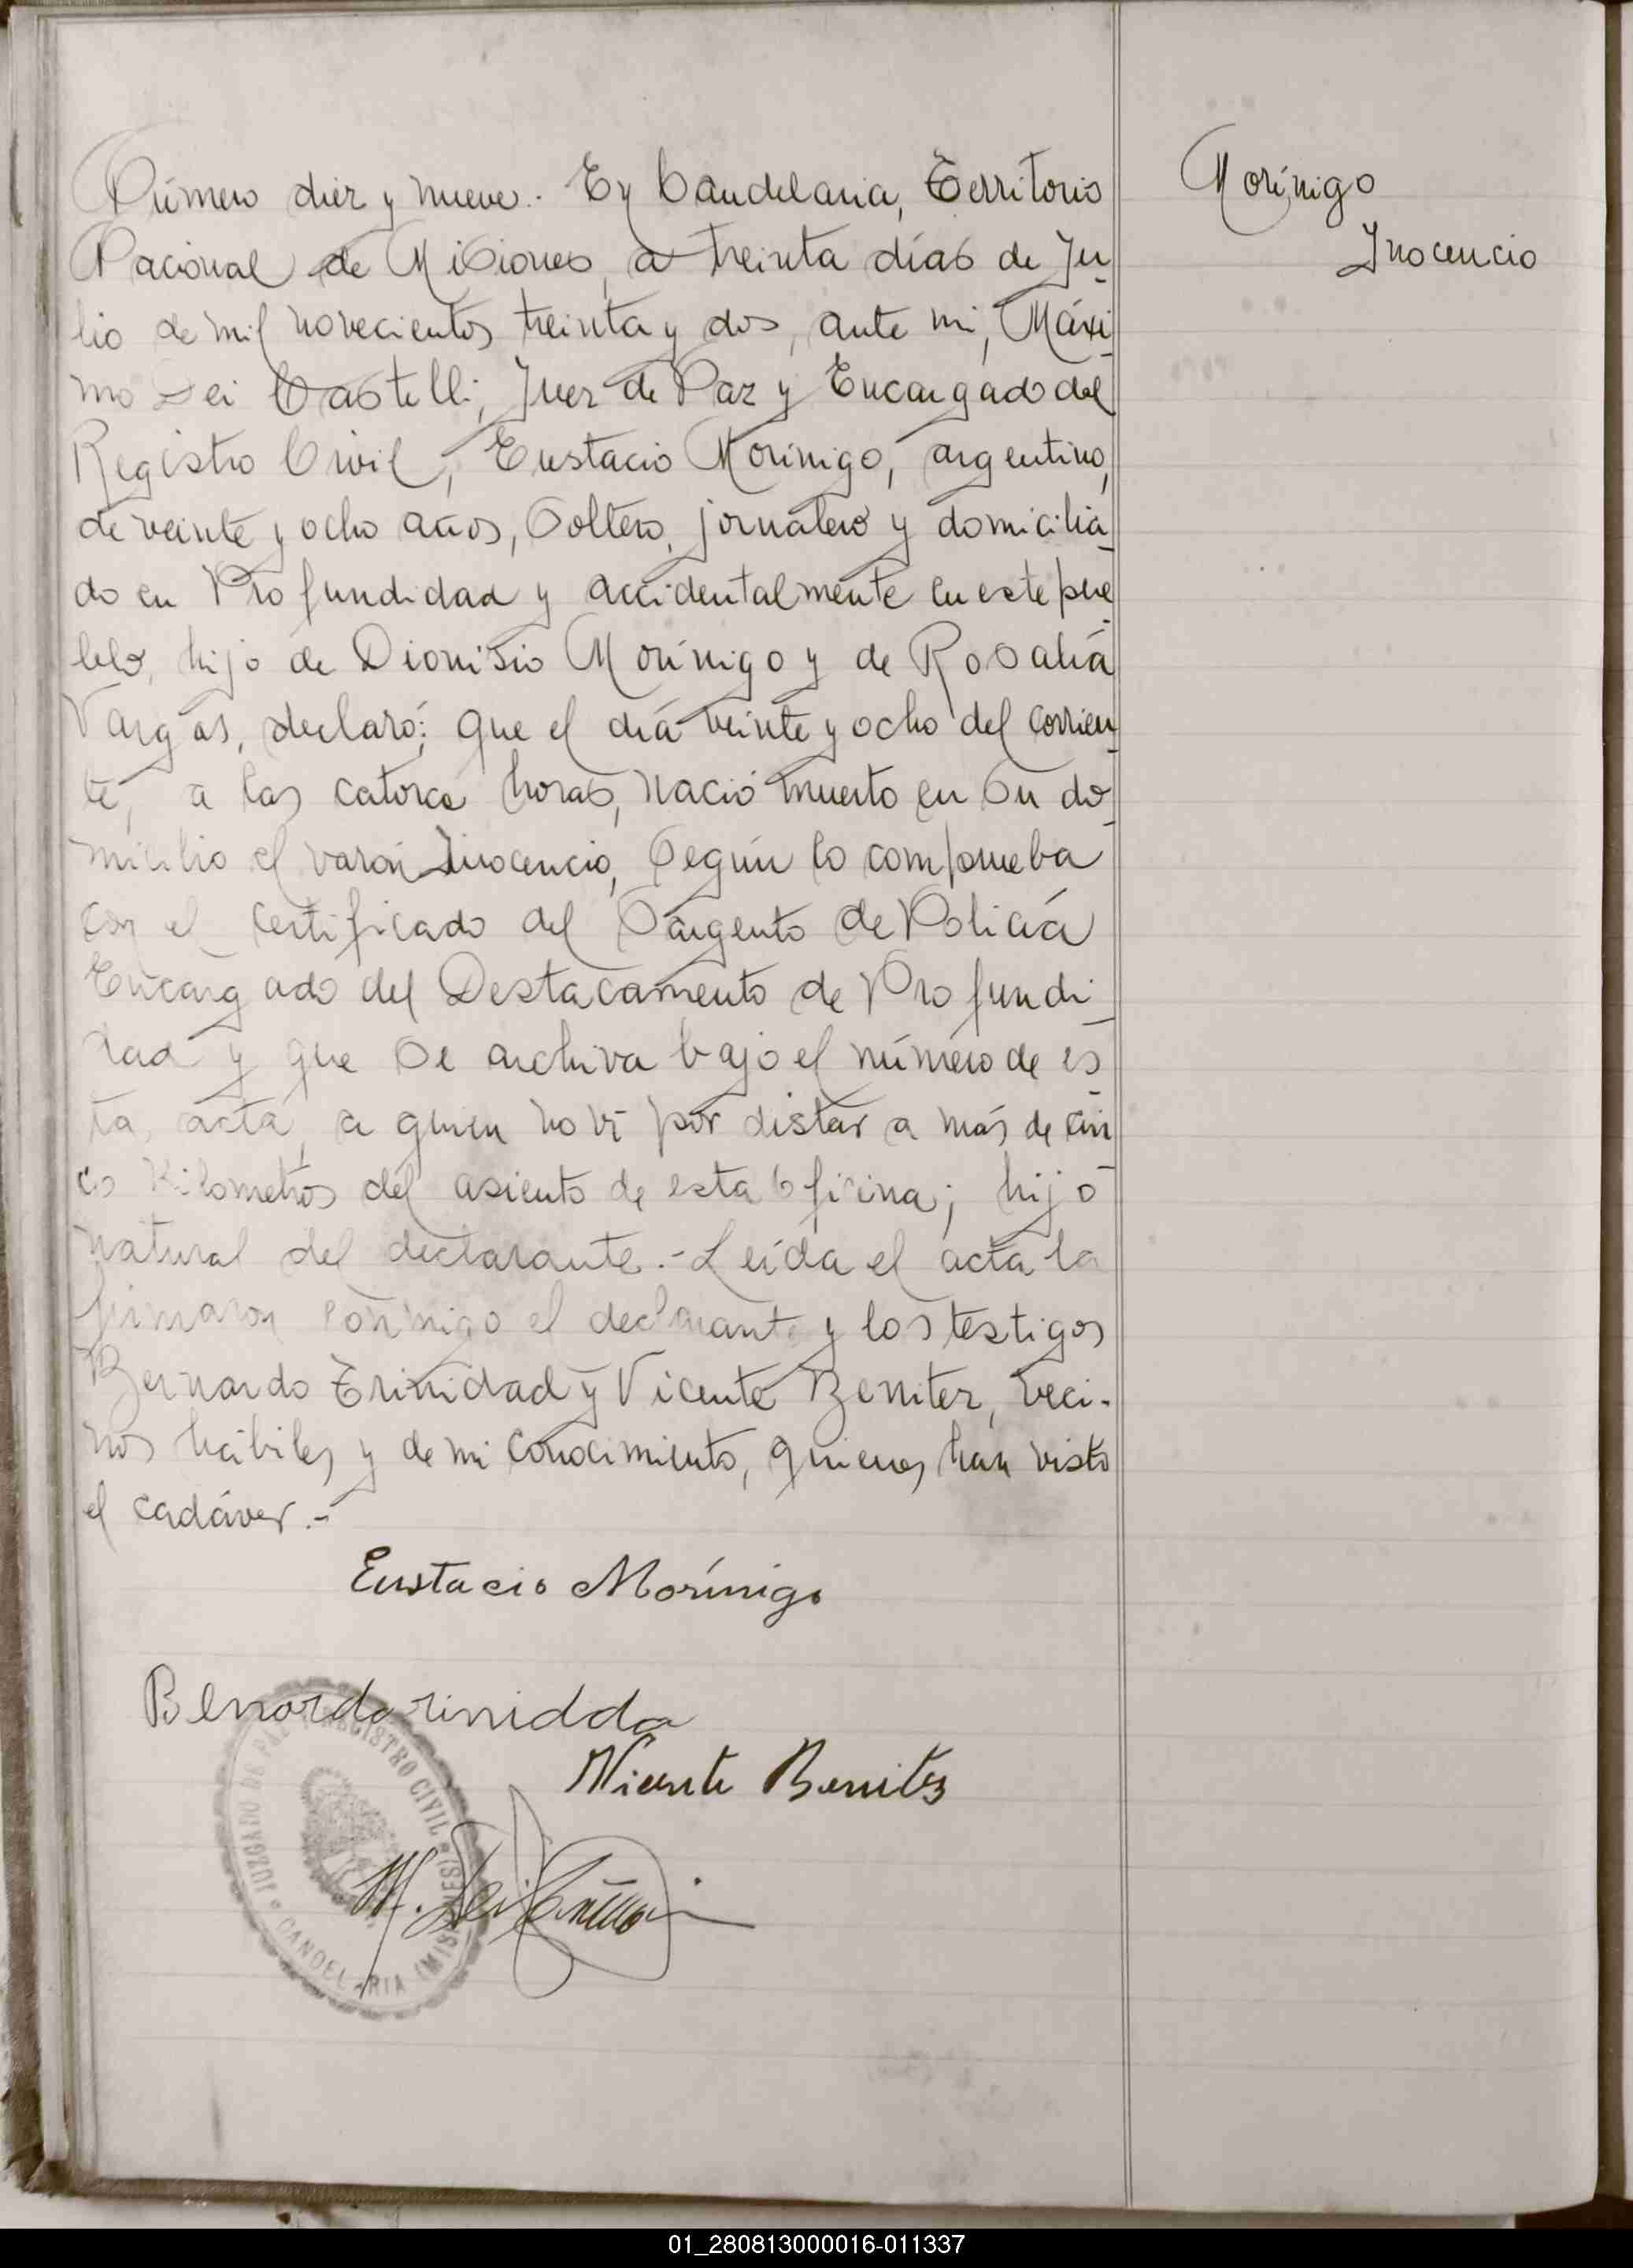 Número diez y nueve.- En Candelaria, Territorio
Nacional de Misiones, a treinta días de Ju-
lio de mil novecientos treinta y dos, ante mi, Máxi-
mo Dei Castelli, Juez de Paz y Encargado del
Registro Civil, Eustacio Morínigo, argentino,
de veinte y ocho años, soltero, jornalero y domicilia-
do en Profundidad y accidentalmente en este pue-
blo, hijo de Dionisio Morínigo y de Rosalía
Vargas, declaró: que el día veinte y ocho del corrien-
te, a las catorce horas, nació muerto en su do-
micilio el varón Inocencio, según lo comprueba
con el certificado del Sargento de Policía
Encargado del Destacamento de Profundi-
dad y que se archiva bajo el número de es-
ta acta, a quien no ví por distar a más de cin-
co Kilometros del asiento de esta oficina; hijo
natural del declarante.- Leída el acta la
firmaron conmigo el declarante y los testigos
Bernardo Trinidad y Vicente Benitez, veci-
nos hábiles y de mi conocimiento, quienes han visto
el cadáver.-
Morínigo
Inocencio
Eustacio Morínigo
Benordo rinidda
Vicente Benitez
M. Dei Castelli
JUZGADO DE PAZ Y REGISTRO CIVIL
CANDELARIA (MISIONES)
01_280813000016-011337